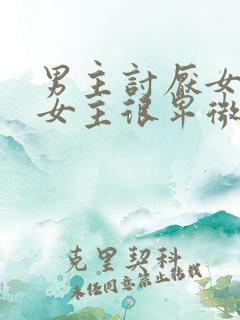 男主討厭女
女主很卑微
克里契科
未经同意禁止转载